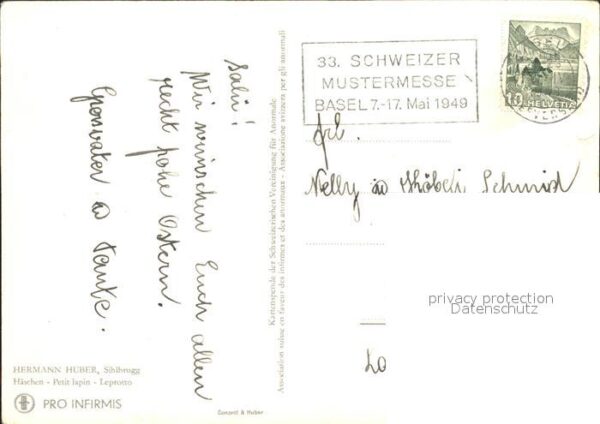 Salü!
Wir wünschen Euch allen
recht frohe Ostern.
Grosvater u Tante.
Kartenspende der Schweizerischen Vereinigung für Anormale
Association suisse en faveur des infirmes et des anormaux - Associazione svizzera per gli anormali
33. SCHWEIZER
MUSTERMESSE
BASEL 7.-17. Mai 1949
10 HELVETIA
Frl.
Nelly u Schmid
privacy protection
Datenschutz
HERMANN HUBER, Sihlbrugg
Häschen - Petit lapin - Leprotto
PRO INFIRMIS
Conzett & Huber